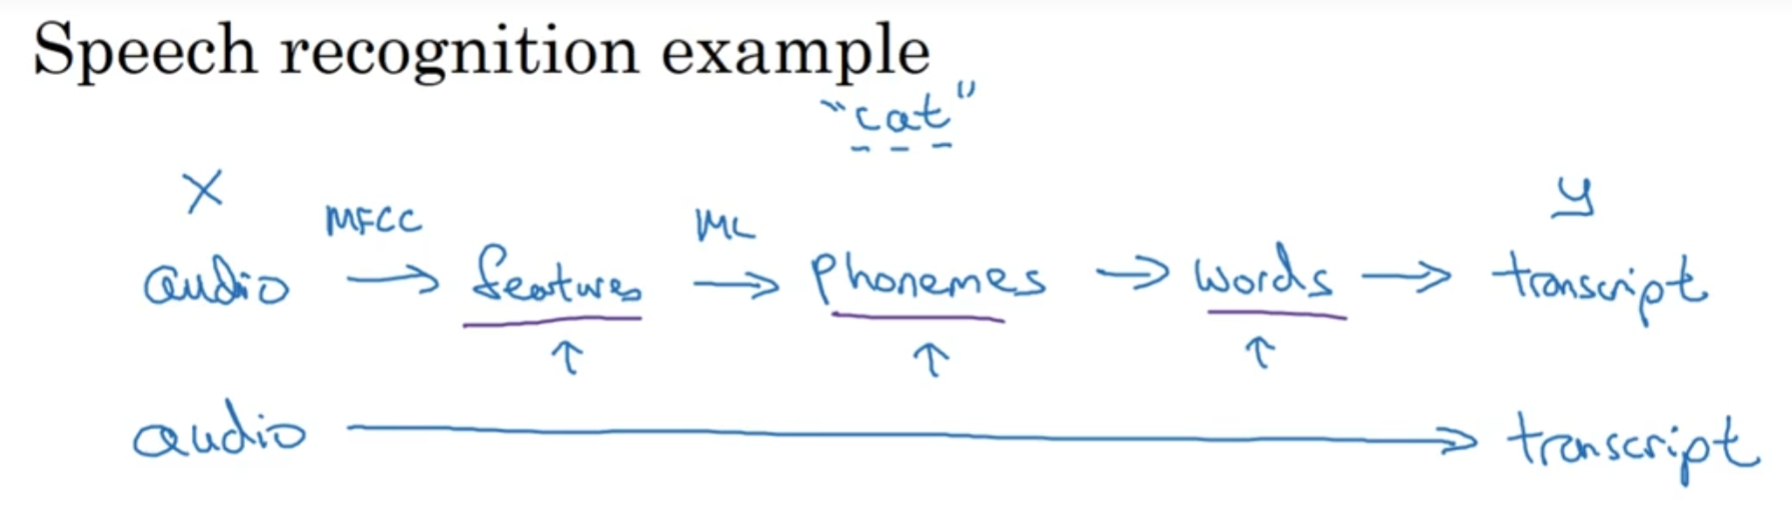 Speech recognition example
"cat"
X y
MFCC ML
audio → features → phonemes → words → transcript
↑ ↑ ↑
audio → transcript